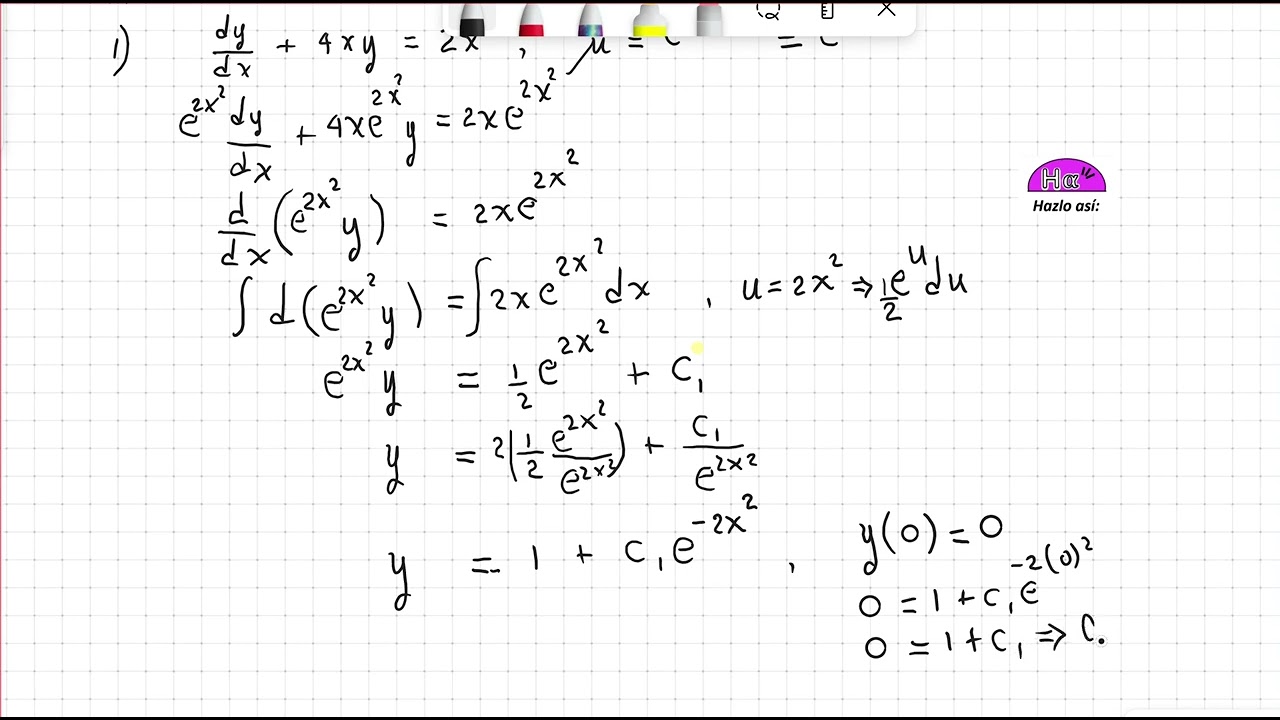 1) dy/dx + 4xy = 2x , μ = e = e
e^{2x^2} dy/dx + 4xe^{2x^2} y = 2xe^{2x^2}
Hα
Hazlo así:
d/dx (e^{2x^2} y) = 2xe^{2x^2}
∫ d(e^{2x^2} y) = ∫ 2xe^{2x^2} dx , u = 2x^2 ⇒ 1/2 e^u du
e^{2x^2} y = 1/2 e^{2x^2} + C_1
y = 2(1/2 e^{2x^2}/e^{2x^2}) + C_1/e^{2x^2}
y = 1 + C_1 e^{-2x^2} , y(0) = 0
0 = 1 + C_1 e^{-2(0)^2}
0 = 1 + C_1 ⇒ C